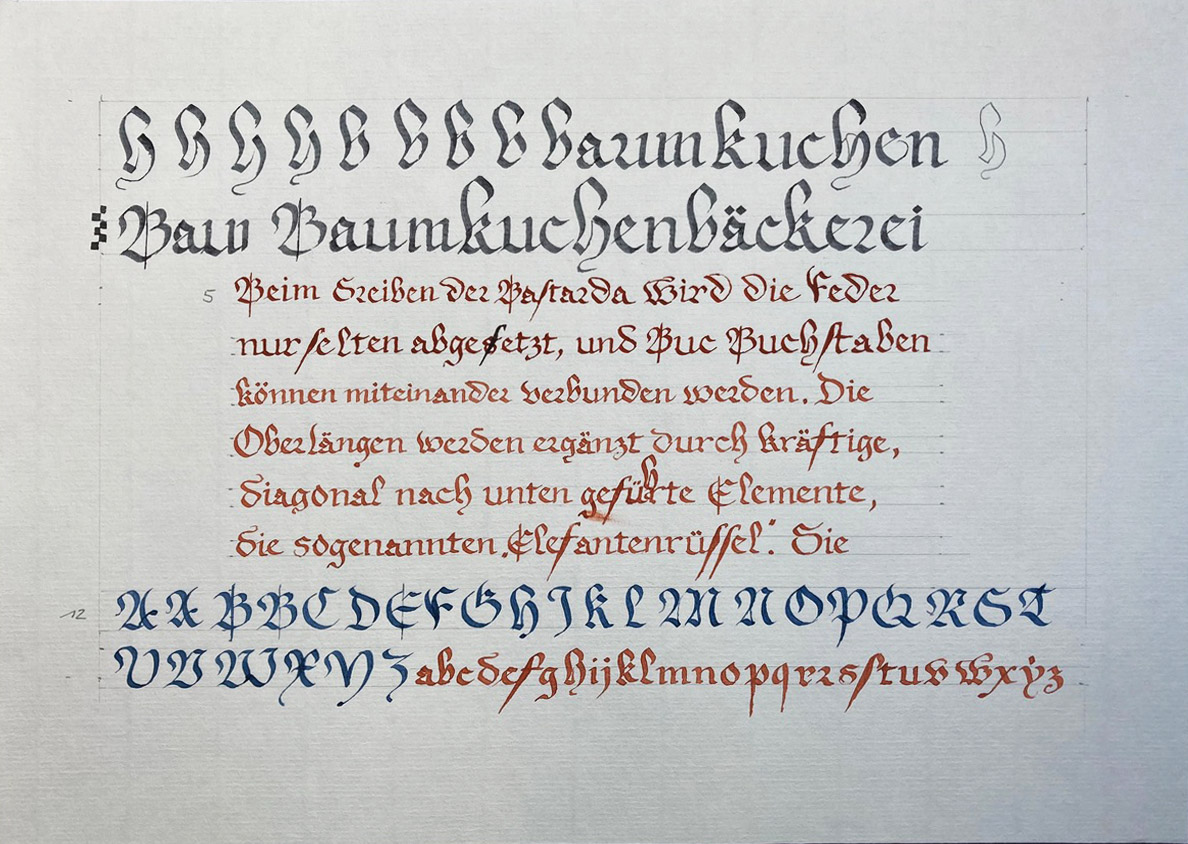 h h h h b b b b baumkuchen h
Baum Baumkuchenbäckerei
5 Beim Sreiben der Baſtarda wird die Feder
nur ſelten abgeſetzt, und Buc Buchſtaben
können miteinander verbunden werden. Die
Oberlängen werden ergänzt durch kräftige,
diagonal nach unten geführte Elemente,
die sogenannten „Elefantenrüſſel“. Die
12 A A B B C D E F G H J K L M N O P Q R S T
U V W X Y Z a b c d e f g h i j k l m n o p q r r s ſ t u v w x y z